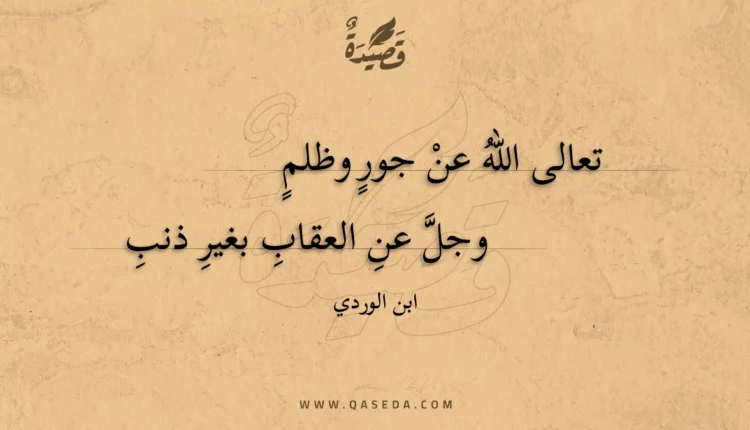 قَصِيْدَةٌ
تعالى اللهُ عنْ جورٍ وظلمٍ
وجلَّ عنِ العقابِ بغيرِ ذنبِ
ابن الوردي
WWW.QASEDA.COM